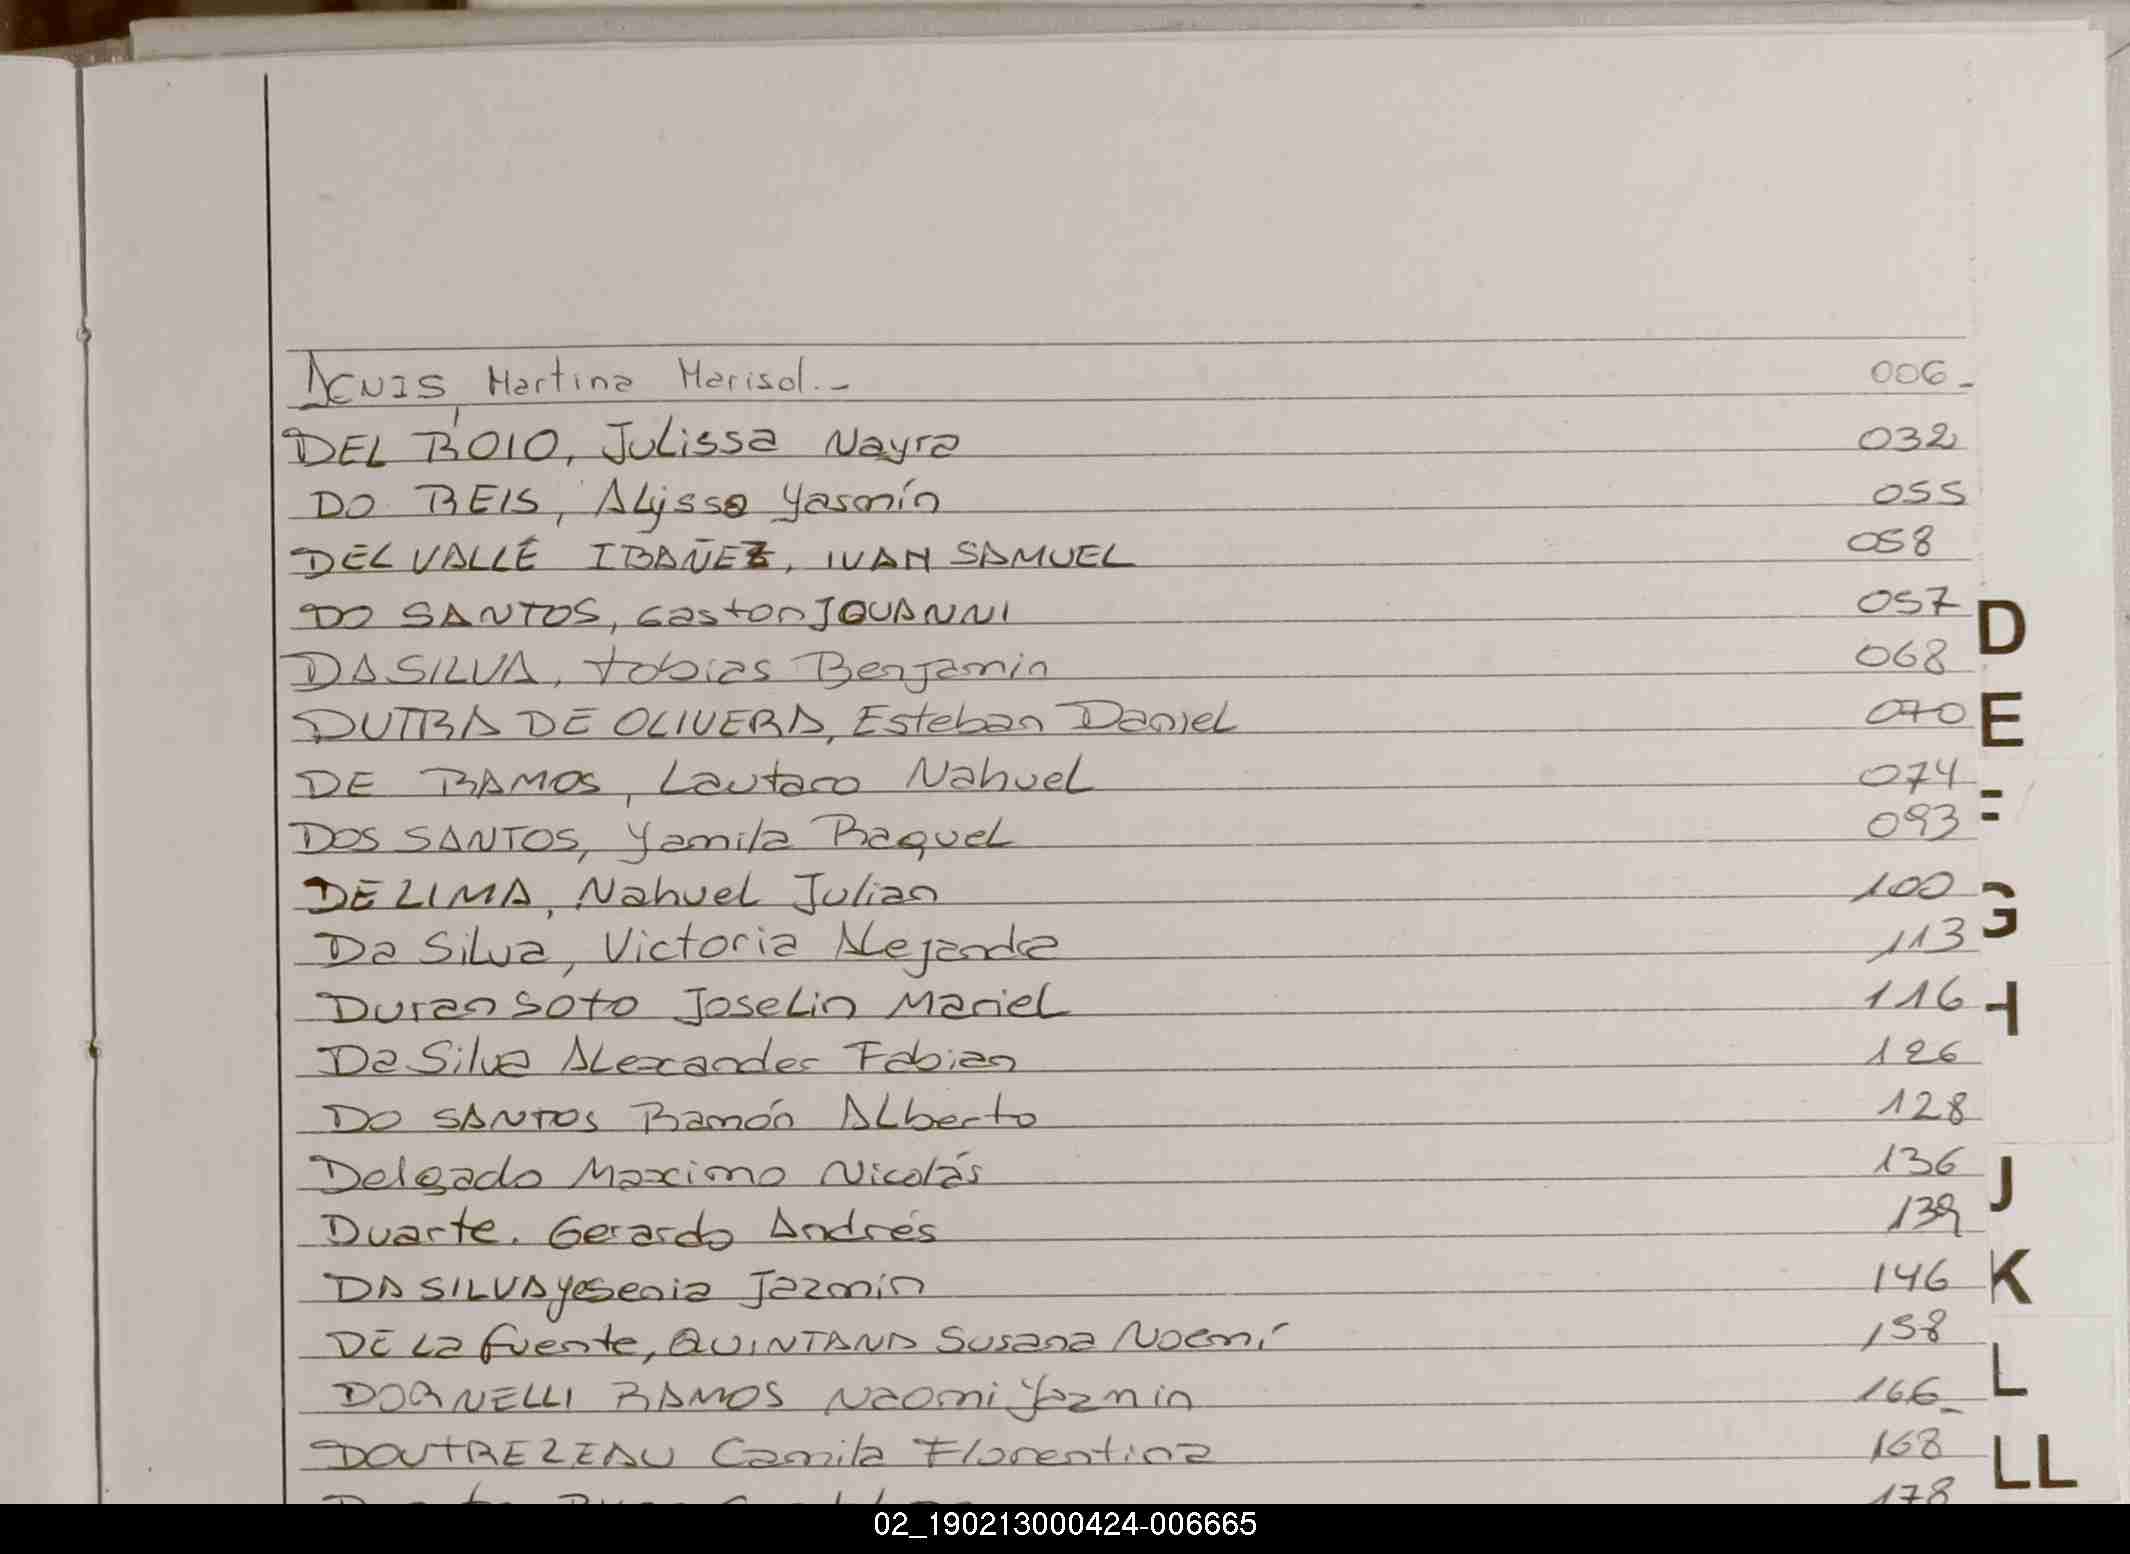 DENIS, Martina Marisol.- 006-
DEL ROIO, Julissa Nayra 032
DO REIS, Alysso Yasmín 055
DEL VALLE IBAÑEZ, IVAN SAMUEL 058
DO SANTOS, Gaston JOVANNI 057
DA SILVA, tobias Benjamin 068
DUTRA DE OLIVERA, Esteban Daniel 070
DE RAMOS, Lautaro Nahuel 074
DOS SANTOS, Yamila Raquel 093
DE LIMA, Nahuel Julian 100
Da Silva, Victoria Alejandra 113
Duran Soto Joselin Mariel 116
Da Silva Alexander Fabian 126
DO SANTOS Ramón Alberto 128
Delgado Maximo Nicolás 136
Duarte. Gerardo Andrés 139
DA SILVA Yesenia Jazmin 146
DE La fuente, QUINTANA Susana Noemí 158
DORNELLI RAMOS Naomi Yazmin 166-
DOUTREZEAU Camila Florentina 168
178
D
E
F
G
H
J
K
L
LL
02_190213000424-006665